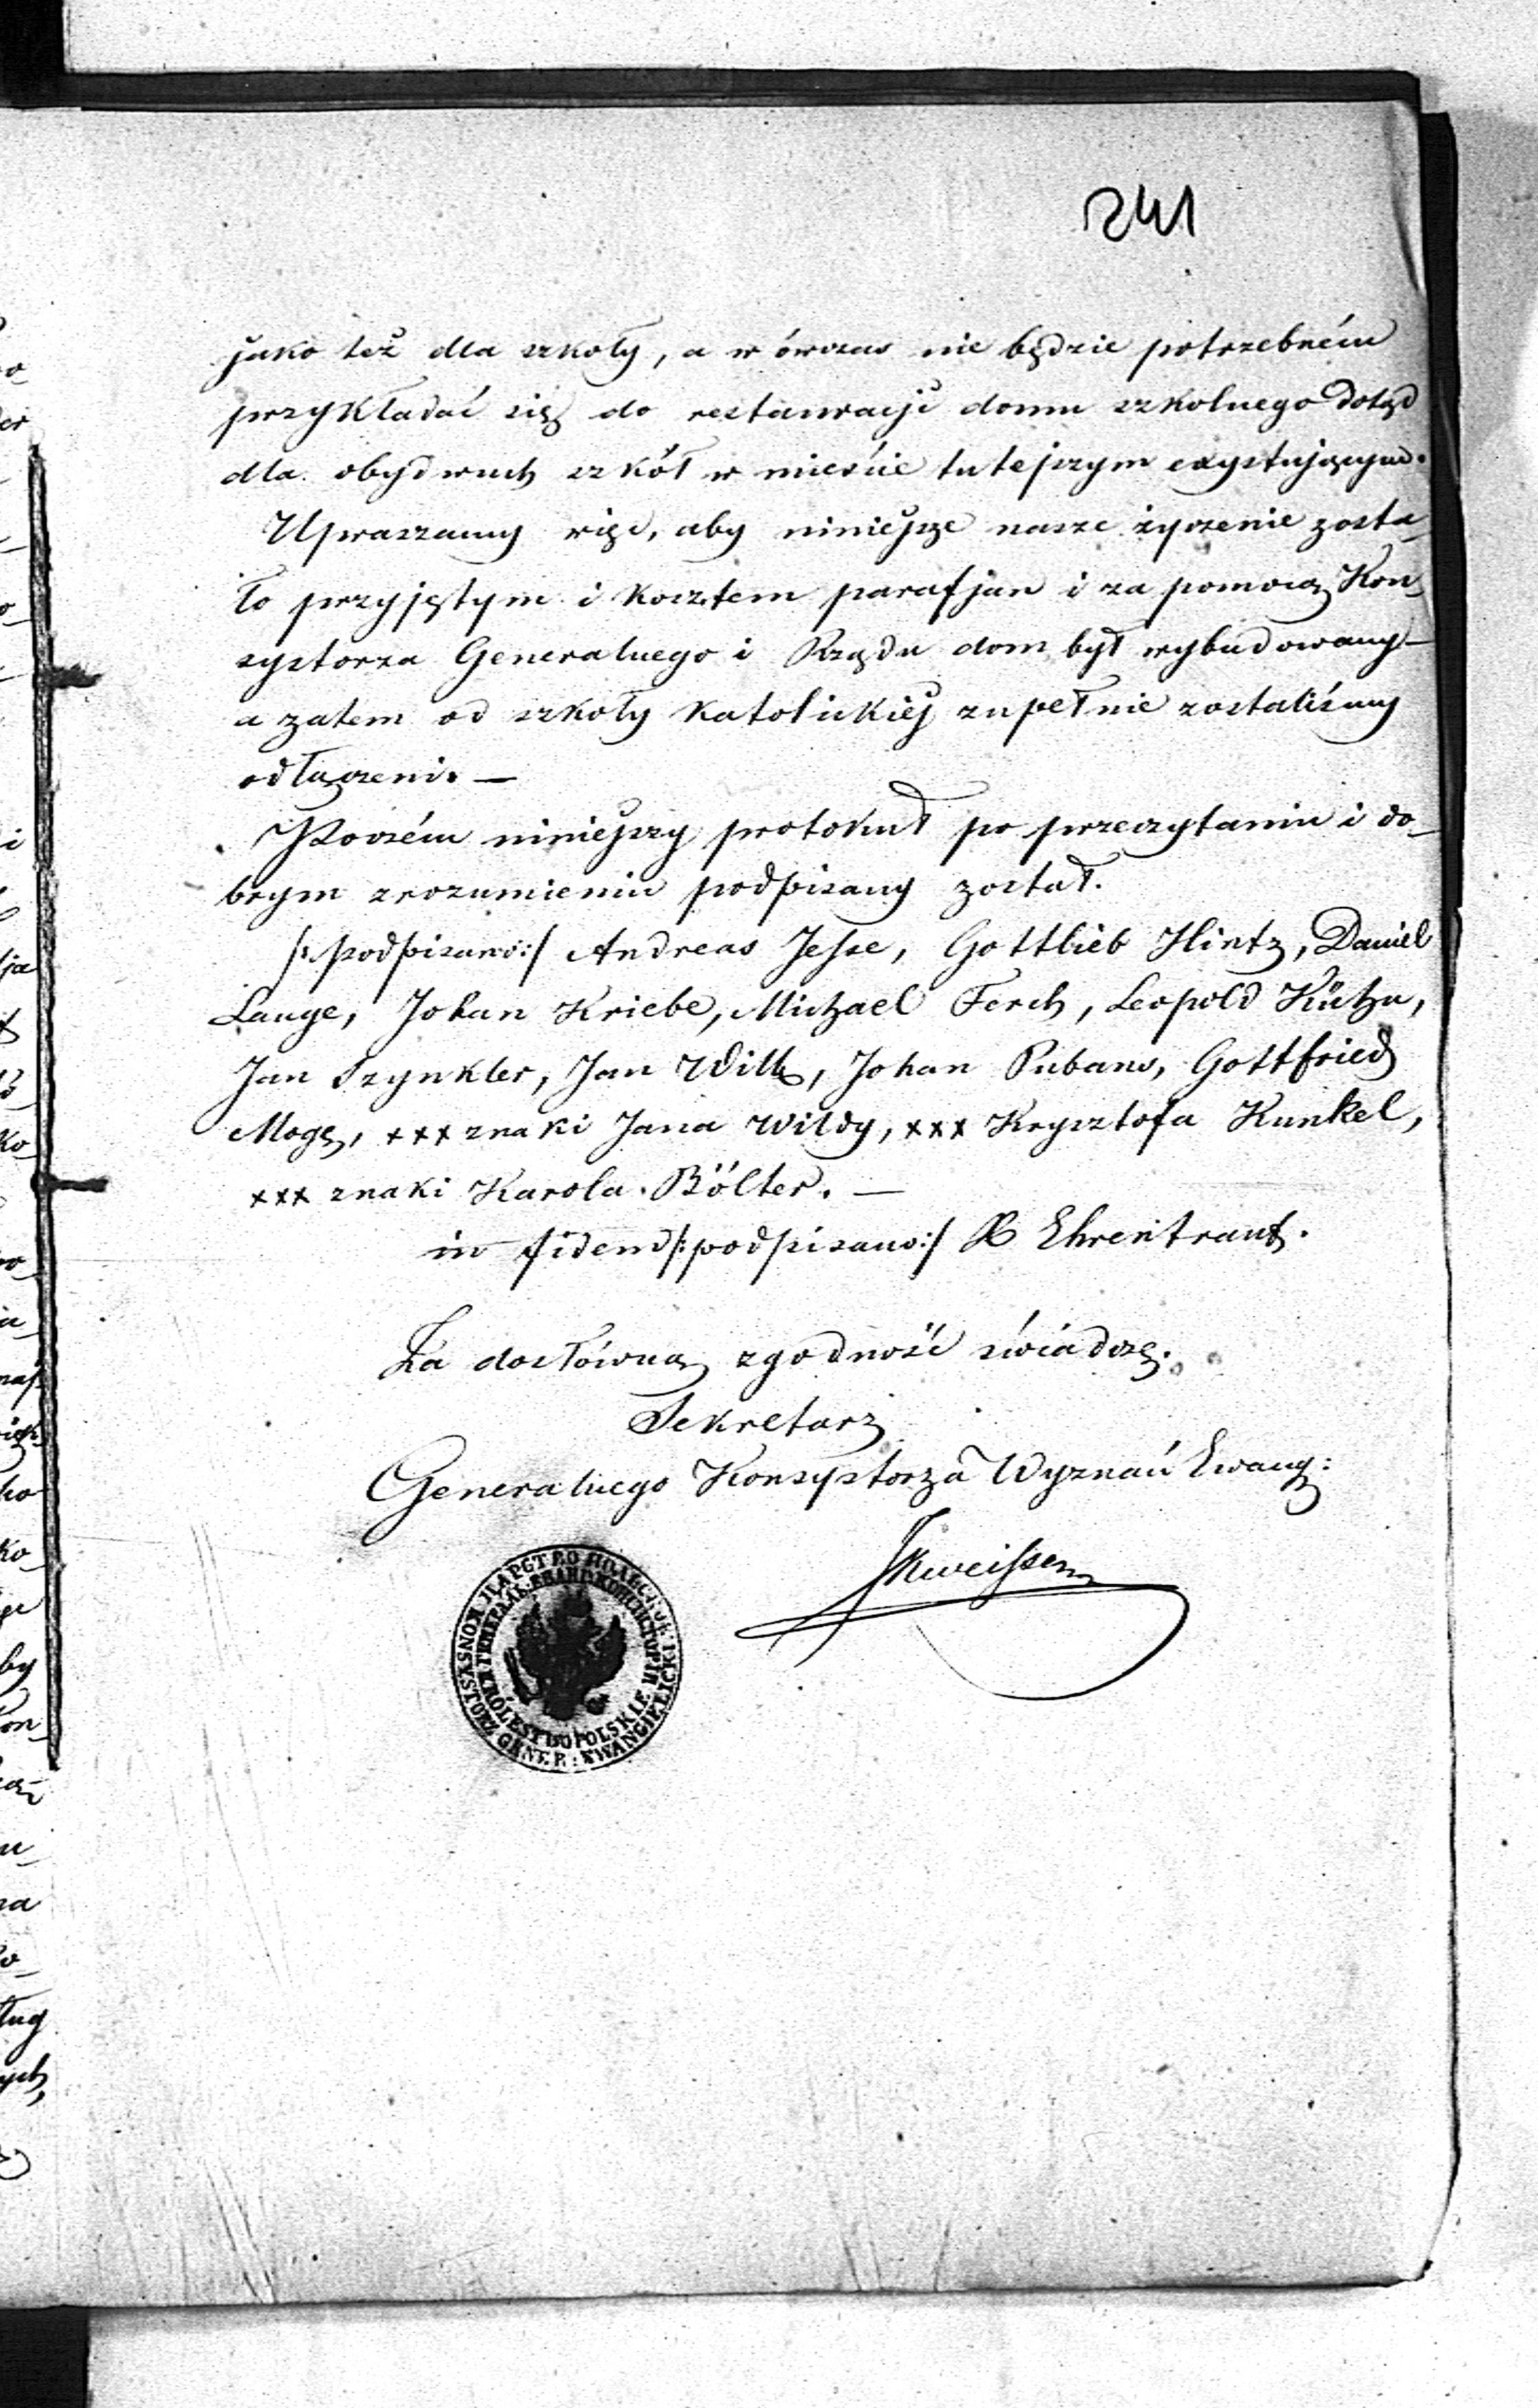 241
jako też dla szkoły, a w ówczas nie będzie potrzebném
przykładać się do restauracji domu szkolnego dotąd
dla obydwuch szkół w mieście tutejszym exystującym.
Upraszamy więc, aby niniejsze nasze życzenie zosta-
ło przyjętym i kosztem parafjan i za pomocą Kon-
systorza Generalnego i Rządu dom był wybudowany
a zatem od szkoły katolickiej zupełnie zostaliśmy
odłączeni. —
Poczém niniejszy protokuł po przeczytaniu i do-
brym zrozumieniu podpisany został.
/:podpisano:/ Andreas Jesse, Gottlieb Hintz, Daniel
Lange, Johan Kriebe, Michael Ferch, Leopold
Jan Szynkler, Jan Wilk, Johan Gottfried
xxx znaki Jana Wildy, xxx Krysztofa Kunkel,
xxx znaki Karola Bölter. —
in fidem /:podpisano:/ Ehrentraut.
Za dosłówną zgodność świadczę.
Sekretarz
Generalnego Konsystorza Wyznań Ewang:
ЦАРСТВО ПОЛЬСКОЕ
KONSYSTORZ GENER: EWANGIELICKI
KRÓLESTWO POLSKIE